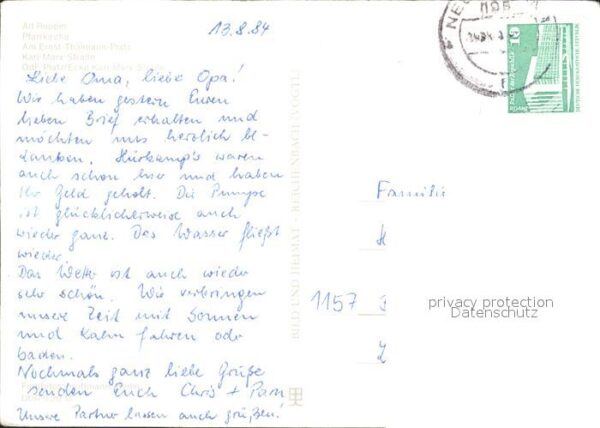 13.8.84
Alt Ruppin
Pfarrkirche
Am Ernst-Thälmann-Platz
Karl-Marx-Straße
Liebe Oma, liebe Opa!
Wir haben gestern Euren
lieben Brief erhalten und
möchten uns herzlich be-
danken. Hürkamp's waren
auch schon hier und haben
Ihr Geld geholt. Die Pumpe
ist glücklicherweise auch
wieder ganz. Das Wasser fließt
wieder.
Das Wetter ist auch wieder
sehr schön. Wir verbringen
unsere Zeit mit Sonnen
und Kahn fahren oder
baden.
Nochmals ganz liebe Grüße
senden Euch Chris +
Unsere Partner lassen auch grüßen!
BILD UND HEIMAT REICHENBACH
NEU
10
DEUTSCHE DEMOKRATISCHE REPUBLIK
Familie
H
1157
privacy protection
Datenschutz